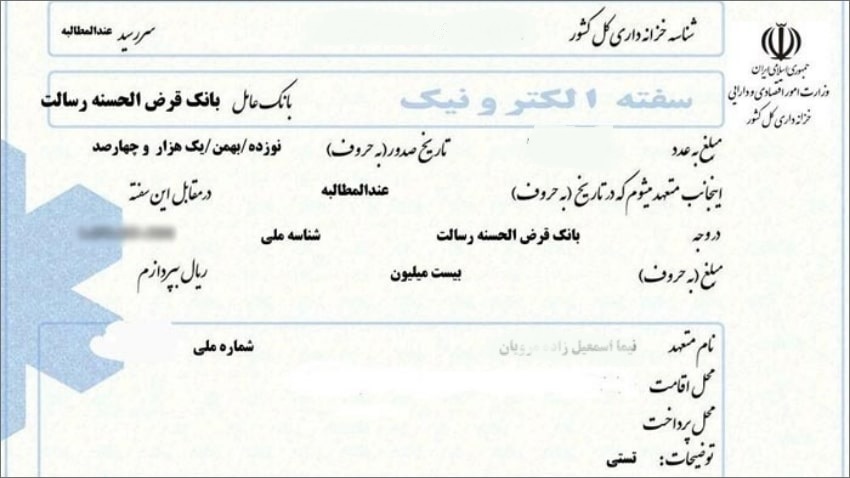 شناسه خزانه داری کل کشور سررسید عندالمطالبه
جمهوری اسلامی ایران
وزارت امور اقتصادی و دارایی
خزانه داری کل کشور
سفته الکترونیک بانک عامل بانک قرض الحسنه رسالت
مبلغ به عدد تاریخ صدور (به حروف) نوزده/بهمن/یک هزار و چهارصد
اینجانب متعهد میشوم که در تاریخ (به حروف) عندالمطالبه در مقابل این سفته
در وجه بانک قرض الحسنه رسالت شناسه ملی
مبلغ (به حروف) بیست میلیون ریال بپردازم
نام متعهد نیما اسمعیل زاده شماره ملی
محل اقامت
محل پرداخت
توضیحات: تستی